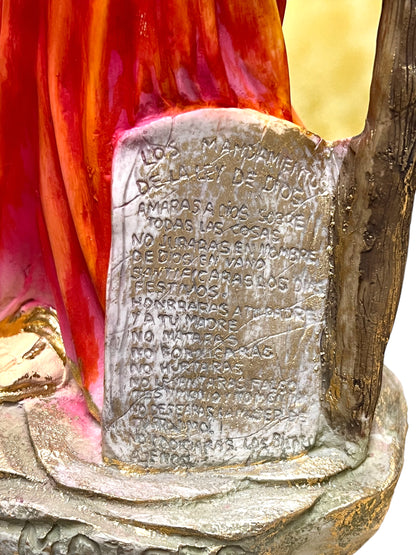 LOS MANDAMIENTOS
DE LA LEY DE DIOS
AMARAS A DIOS SOBRE
TODAS LAS COSAS
NO JURARAS EN NOMBRE
DE DIOS EN VANO
SANTIFICARAS LOS DIAS
FESTIVOS
HONRRARAS A TU PADRE
Y A TU MADRE
NO MATARAS
NO FORNICARAS
NO HURTARAS
NO LEVANTARAS FALSO
TESTIMONIO Y NO MENTIR
NO DESEARAS LA MUJER DE
TU PROJIMO
NO LOS BIENES
AJENOS